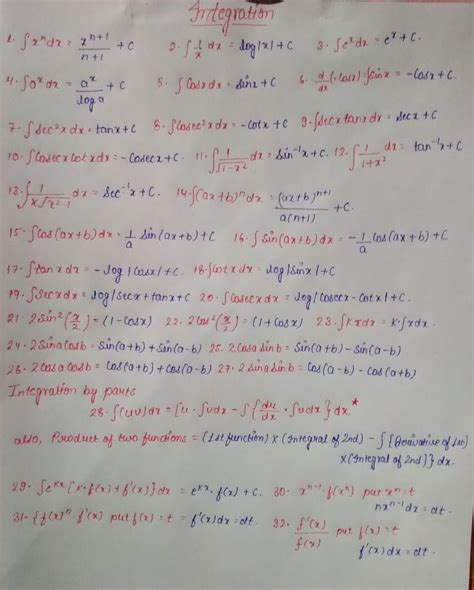 Integration
1. ∫xⁿdx = xⁿ⁺¹/n+1 + C 2. ∫1/x dx = log|x| + C 3. ∫eˣdx = eˣ + C.
4. ∫aˣdx = aˣ/log a + C 5. ∫Cosx dx = Sinx + C 6. d/dx(-Cosx) = ∫Sinx = -Cosx + C.
7. ∫Sec²x dx = tanx + C 8. ∫Cosec²x dx = -Cotx + C 9. ∫Secx tanx dx = Secx + C
10. ∫Cosecx Cotx dx = -Cosecx + C. 11. ∫1/√1-x² dx = Sin⁻¹x + C. 12. ∫1/1+x² dx = tan⁻¹x + C
13. ∫1/x√x²-1 dx = Sec⁻¹x + C. 14. ∫(ax+b)ⁿdx = (ax+b)ⁿ⁺¹/a(n+1) + C.
15. ∫Cos(ax+b)dx = 1/a Sin(ax+b) + C 16. ∫Sin(ax+b)dx = -1/a Cos(ax+b) + C
17. ∫tanx dx = -log|Cosx| + C. 18. ∫Cotx dx = log|Sinx| + C
19. ∫Secx dx = log|Secx + tanx + C 20. ∫Cosecx dx = log|Cosecx - Cotx| + C.
21. 2Sin²(x/2) = (1-Cosx) 22. 2Cos²(x/2) = (1+Cosx) 23. ∫K x dx = K·∫x dx.
24. 2Sina Cosb = Sin(a+b) + Sin(a-b) 25. 2Cosa Sinb = Sin(a+b) - Sin(a-b)
26. 2Cosa Cosb = Cos(a+b) + Cos(a-b) 27. 2Sina Sinb = Cos(a-b) - Cos(a+b)
Integration by parts
28. ∫(uv)dx = [u·∫vdx - ∫{du/dx·∫vdx}dx*
also, Product of two functions = (1st function) × (Integral of 2nd) - ∫[(Derivative of 1st)
× (Integral of 2nd)]} dx.
29. ∫eᴷˣ[K·f(x) + f'(x)}dx = eᴷˣ·f(x) + C. 30. xⁿ⁻¹·f(xⁿ) put xⁿ = t
nxⁿ⁻¹dx = dt.
31. {f(x)ⁿ·f'(x) put f(x) = t = f'(x)dx = dt. 32. f'(x)/f(x) put f(x) = t
f'(x)dx = dt.